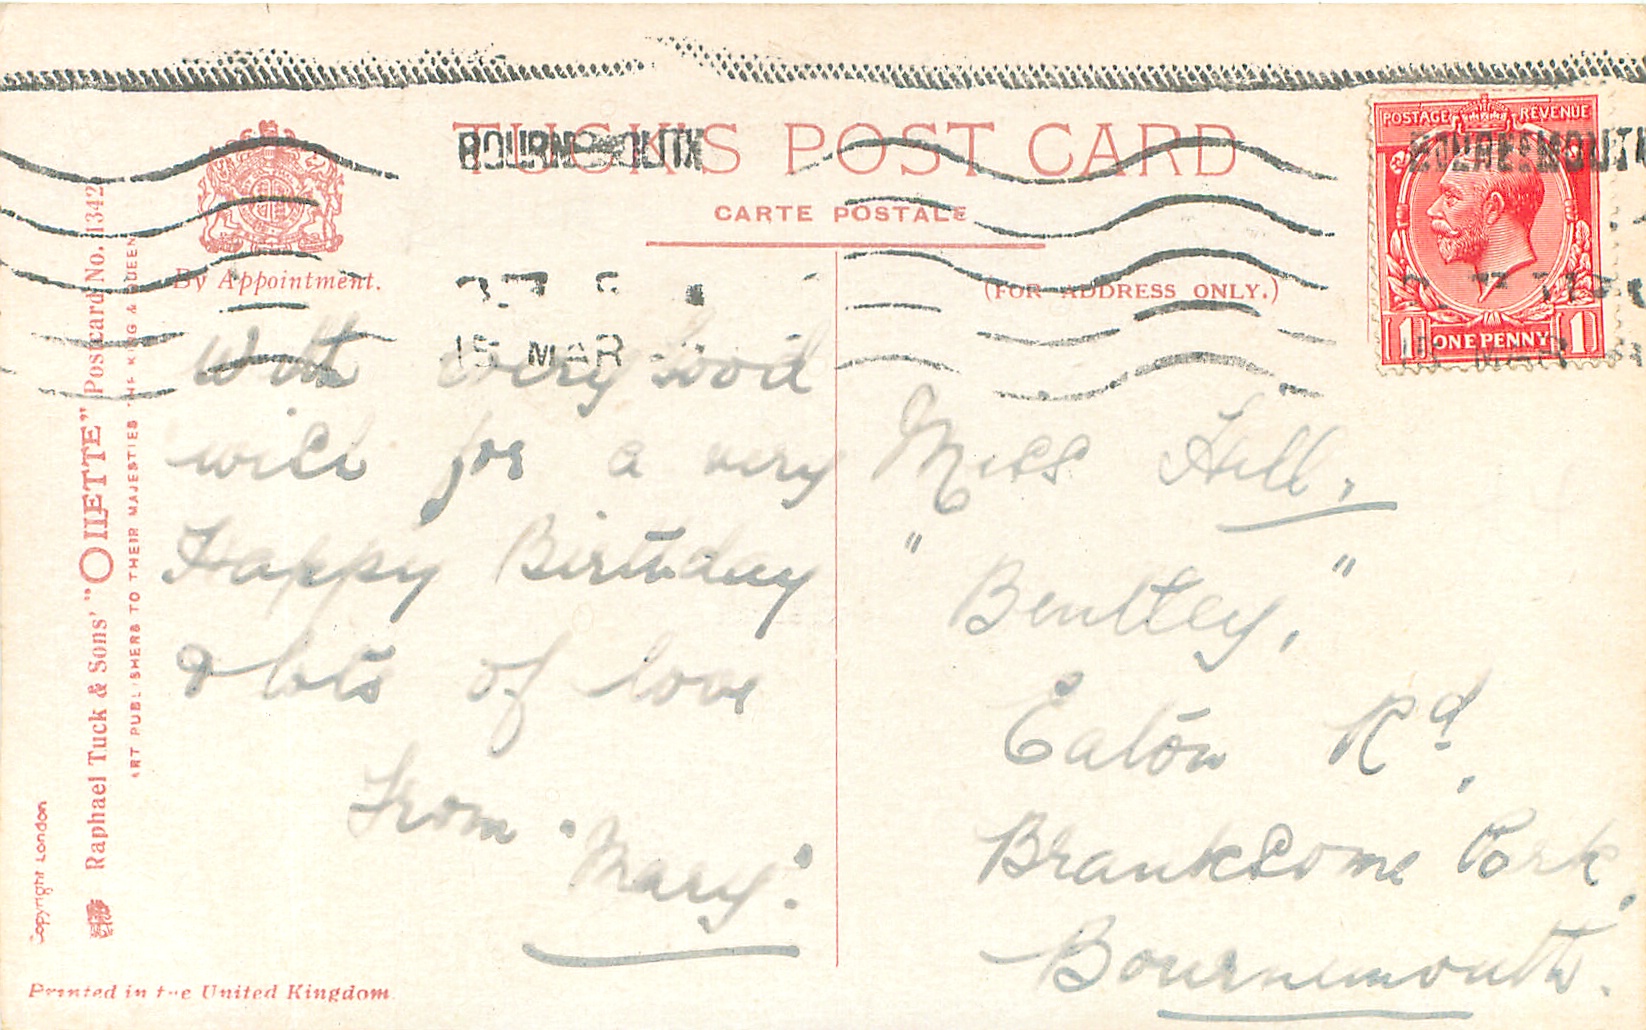 TUCK'S POST CARD
CARTE POSTALE
By Appointment.
(FOR ADDRESS ONLY.)
BOURNEMOUTH
15 MAR
POSTAGE REVENUE
1 ONE PENNY 1
BOURNEMOUTH
15 MAR
With every good
wish for a very
Happy Birthday
& lots of love
From "Mary".
Miss Hill,
"Bentley,"
Eaton Rd,
Branksome Park,
Bournemouth.
Raphael Tuck & Sons' "OILETTE" Postcard No. 1342
ART PUBLISHERS TO THEIR MAJESTIES THE KING & QUEEN
Copyright London
Printed in the United Kingdom